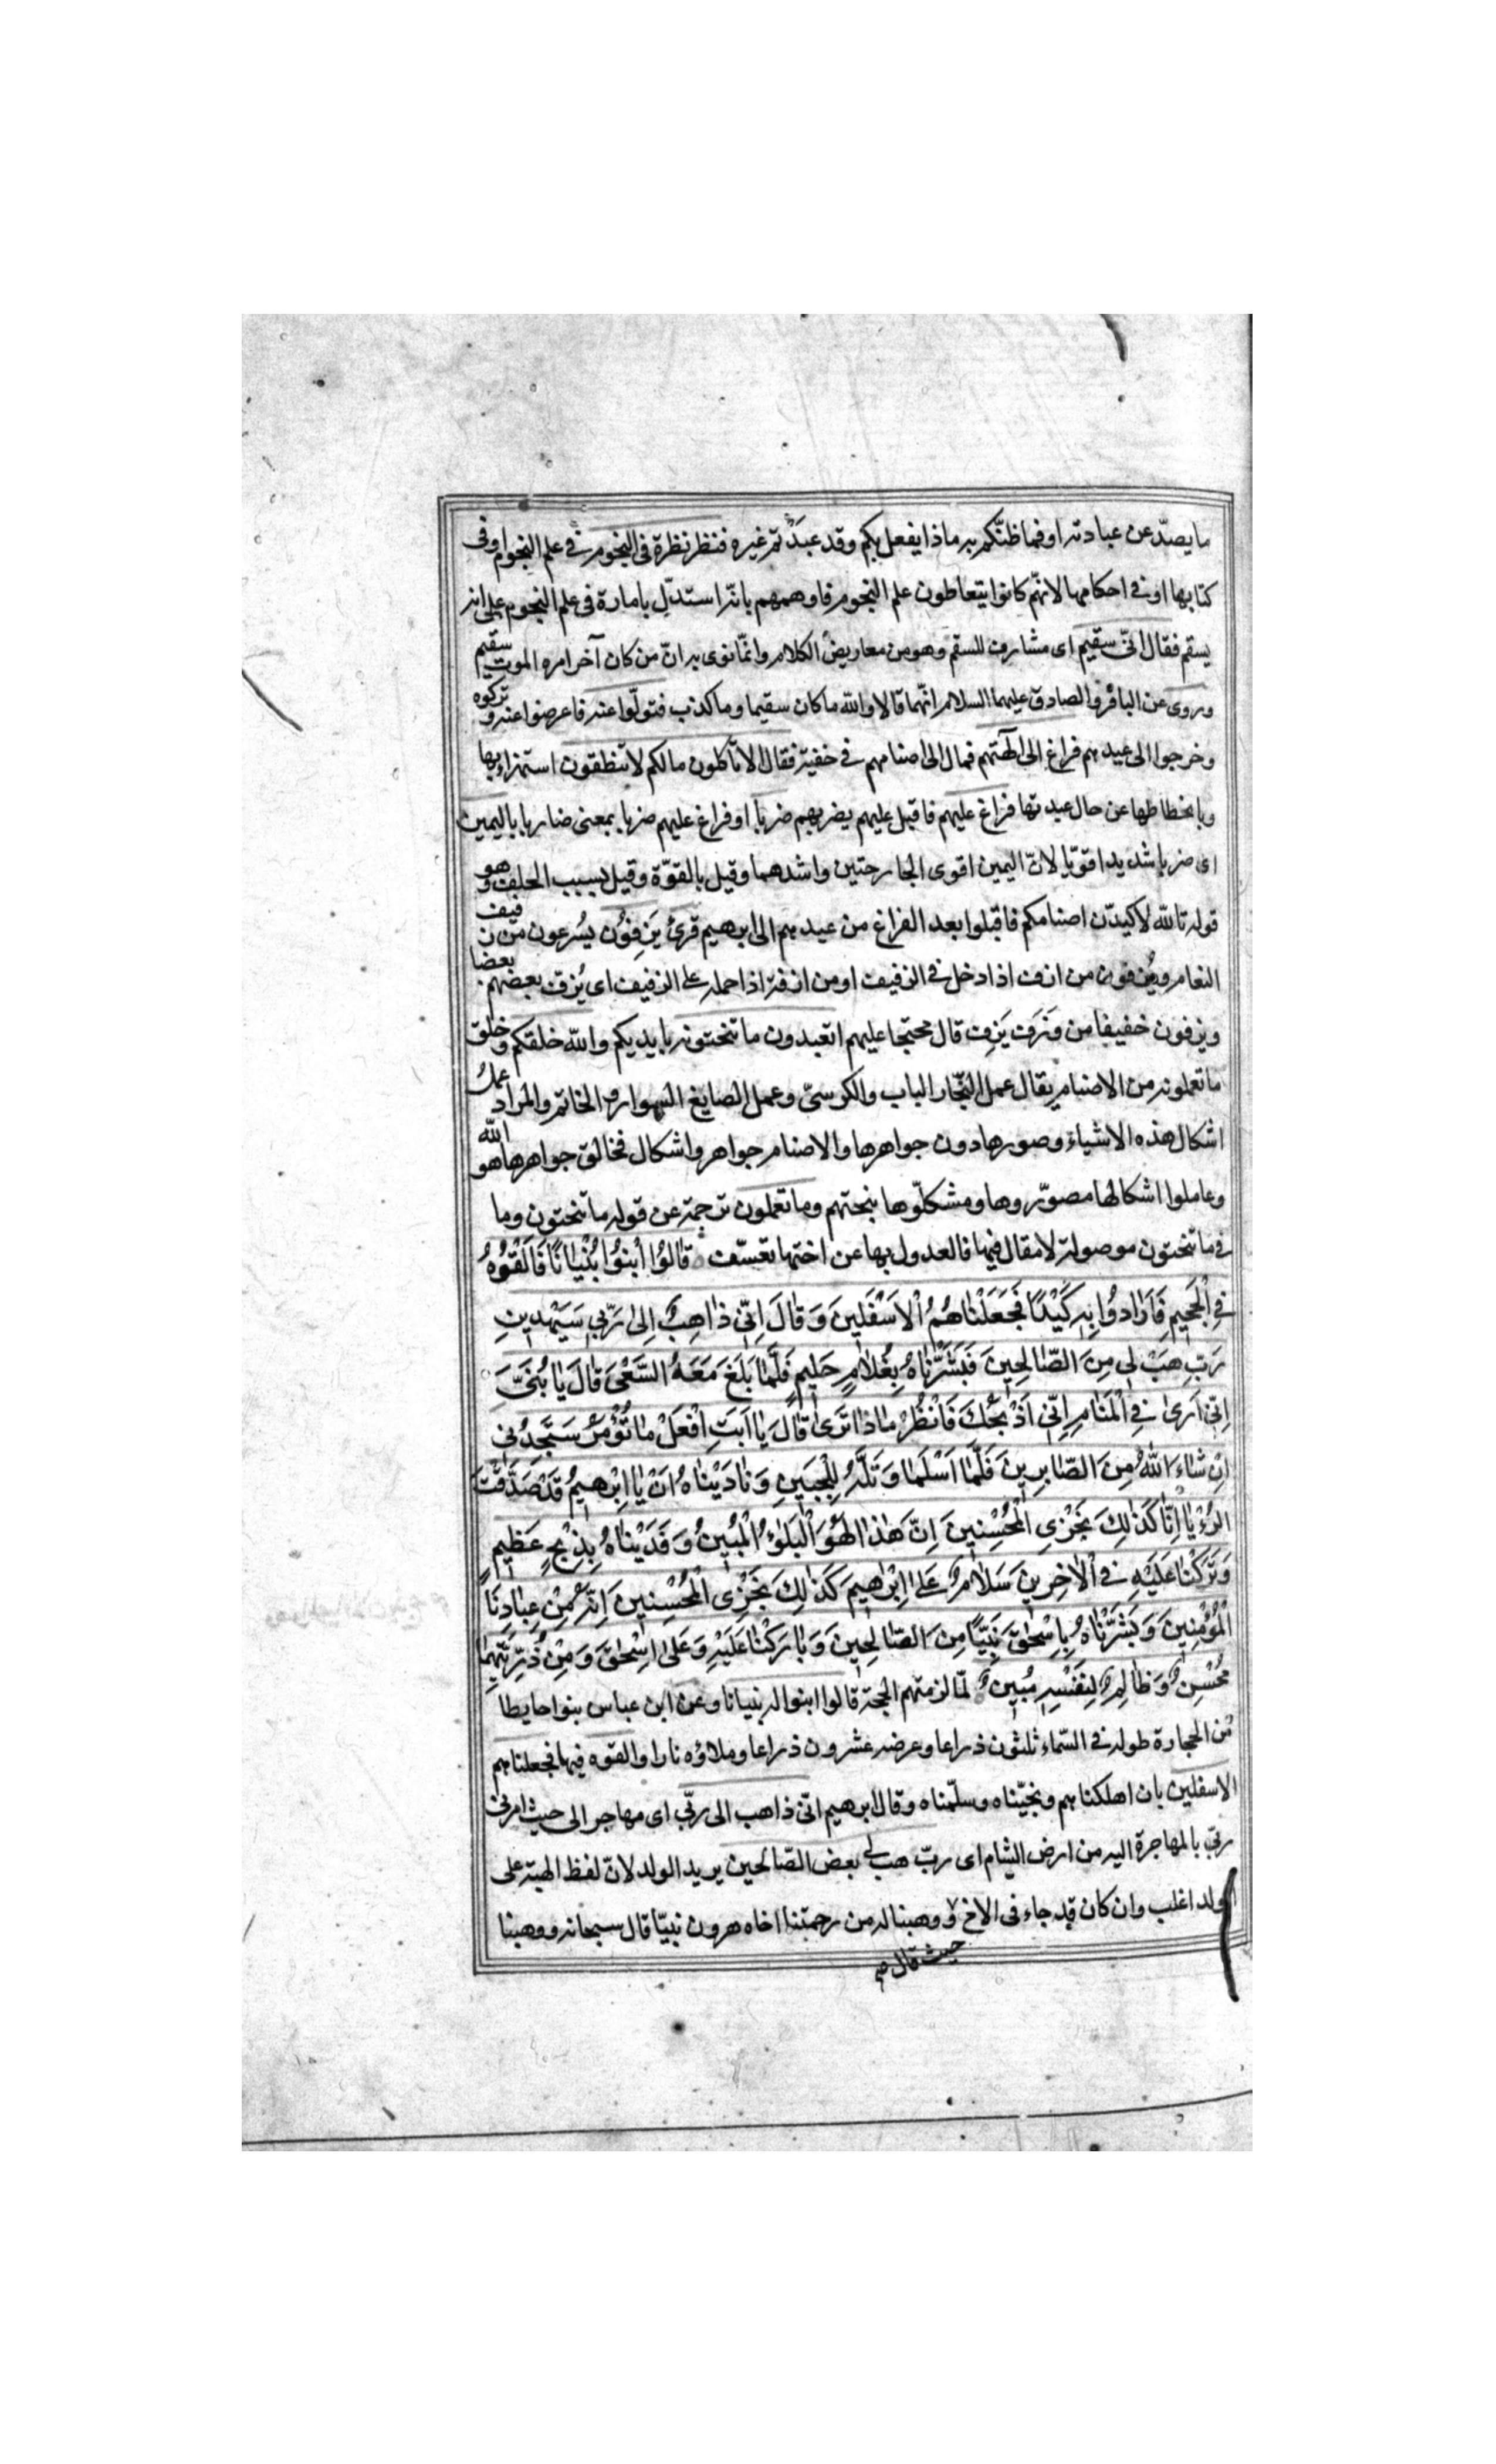 ما يصدّ عن عبادته او فما ظنّكم به ماذا يفعل بكم وقد عبدتم غيره فنظر نظرة فى النجوم فى علم النجوم او فى
كتابها او فى احكامها لانهم كانوا يتعاطون علم النجوم فاوهمهم بانه استدلّ بامارة فى علم النجوم على انه
يسقم فقال انّى سقيم اى مشارف للسقم وهو من معاريض الكلام وانّما نوى به انّ من كان آخر امره الموت سقيم
وروى عن الباقر والصادق عليهما السلام انّهما قالا والله ما كان سقيما وما كذب فتولّوا عنه فاعرضوا عنه وتركوه
وخرجوا الى عيدهم فراغ الى آلهتهم فمال الى اصنامهم فى خفية فقال الا تأكلون مالكم لا تنطقون استهزاء بها
وبانحطاطها عن حال عبدتها فراغ عليهم فاقبل عليهم يضربهم ضربا او فراغ عليهم ضربا بمعنى ضاربا باليمين
اى ضربا شديدا قويّا لانّ اليمين اقوى الجارحتين واشدهما وقيل بالقوّة وقيل بسبب الحلف وهو
قوله تالله لاكيدنّ اصنامكم فاقبلوا بعد الفراغ من عيدهم الى ابرهيم قرئ يَزِفّون يُسرعون من زفيف
النعام ويُزفون من ازف اذا دخل فى الزفيف او من ازفه اذا حمله على الزفيف اى يُزفّ بعضهم بعضا
ويزفون خفيفا من وَزَفَ يَزِف قال محتجا عليهم اتعبدون ما تنحتونه بايديكم والله خلقكم وخلق
ما تعملونه من الاصنام يقال عمل النجّار الباب والكرسىّ وعمل الصايغ السوار والخاتم والمراد عمل
اشكال هذه الاشياء وصورها دون جواهرها والاصنام جواهر واشكال فخالق جواهرها هو الله
وعاملوا اشكالها مصوّروها ومشكلّوها بنحتهم وما تعملون ترجمة عن قوله ما تنحتون وما
فى ما تنحتون موصولة لا مقال فيها فالعدول بها عن اختها تعسّف قَالُوا ابْنُوا بُنْيَانًا فَاَلْقُوهُ
فِى الْجَحِيمِ فَاَرَادُوا بِهِ كَيْدًا فَجَعَلْنَاهُمُ الْاَسْفَلِينَ وَقَالَ اِنِّى ذَاهِبٌ اِلىٰ رَبِّى سَيَهْدِينِ
رَبِّ هَبْ لِى مِنَ الصَّالِحِينَ فَبَشَّرْنَاهُ بِغُلَامٍ حَلِيمٍ فَلَمَّا بَلَغَ مَعَهُ السَّعْىَ قَالَ يَا بُنَىَّ
اِنِّى اَرَىٰ فِى الْمَنَامِ اِنِّى اَذْبَحُكَ فَانْظُرْ مَاذَا تَرَىٰ قَالَ يَا اَبَتِ افْعَلْ مَا تُؤْمَرُ سَتَجِدُنِى
اِنْ شَاءَ اللهُ مِنَ الصَّابِرِينَ فَلَمَّا اَسْلَمَا وَتَلَّهُ لِلْجَبِينِ وَنَادَيْنَاهُ اَنْ يَا اِبْرٰهِيمُ قَدْ صَدَّقْتَ
الرُّءْيَا اِنَّا كَذٰلِكَ نَجْزِى الْمُحْسِنِينَ اِنَّ هٰذَا لَهُوَ الْبَلٰؤُ الْمُبِينُ وَفَدَيْنَاهُ بِذِبْحٍ عَظِيمٍ
وَتَرَكْنَا عَلَيْهِ فِى الْاٰخِرِينَ سَلَامٌ عَلىٰ اِبْرٰهِيمَ كَذٰلِكَ نَجْزِى الْمُحْسِنِينَ اِنَّهُ مِنْ عِبَادِنَا
الْمُؤْمِنِينَ وَبَشَّرْنَاهُ بِاِسْحٰقَ نَبِيًّا مِنَ الصَّالِحِينَ وَبَارَكْنَا عَلَيْهِ وَعَلىٰ اِسْحٰقَ وَمِنْ ذُرِّيَّتِهِمَا
مُحْسِنٌ وَظَالِمٌ لِنَفْسِهِ مُبِينٌ لمّا لزمتهم الحجة قالوا ابنوا له بنيانا وعن ابن عباس بنوا حايطا
من الحجارة طوله فى السّماء ثلثون ذراعا وعرضه عشرون ذراعا وملاؤه نارا والقوه فيها فجعلناهم
الاسفلين بان اهلكناهم ونجّيناه وسلّمناه وقال ابرهيم انّى ذاهب الى ربّى اى مهاجر الى حيث امرنى
ربّى بالمهاجرة اليه من ارض الشام اى ربّ هب لى بعض الصّالحين يريد الولد لانّ لفظ الهبة على
الولد اغلب وان كان قد جاء فى الاخ ووهبنا له من رحمتنا اخاه هرون نبيّا قال سبحانه ووهبنا
حيث قال صح